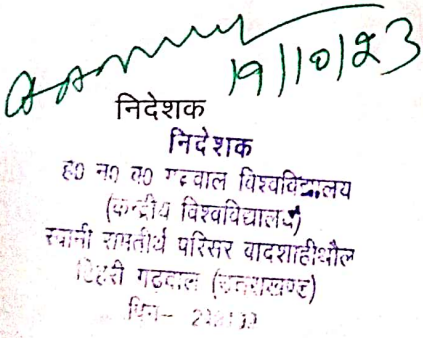 19/10/23
निदेशक
निदेशक
ह0 न0 ब0 गढ़वाल विश्वविद्यालय
(केन्द्रीय विश्वविद्यालय)
स्वामी रामतीर्थ परिसर बादशाहीथौल
टिहरी गढ़वाल (उत्तराखण्ड)
पिन-